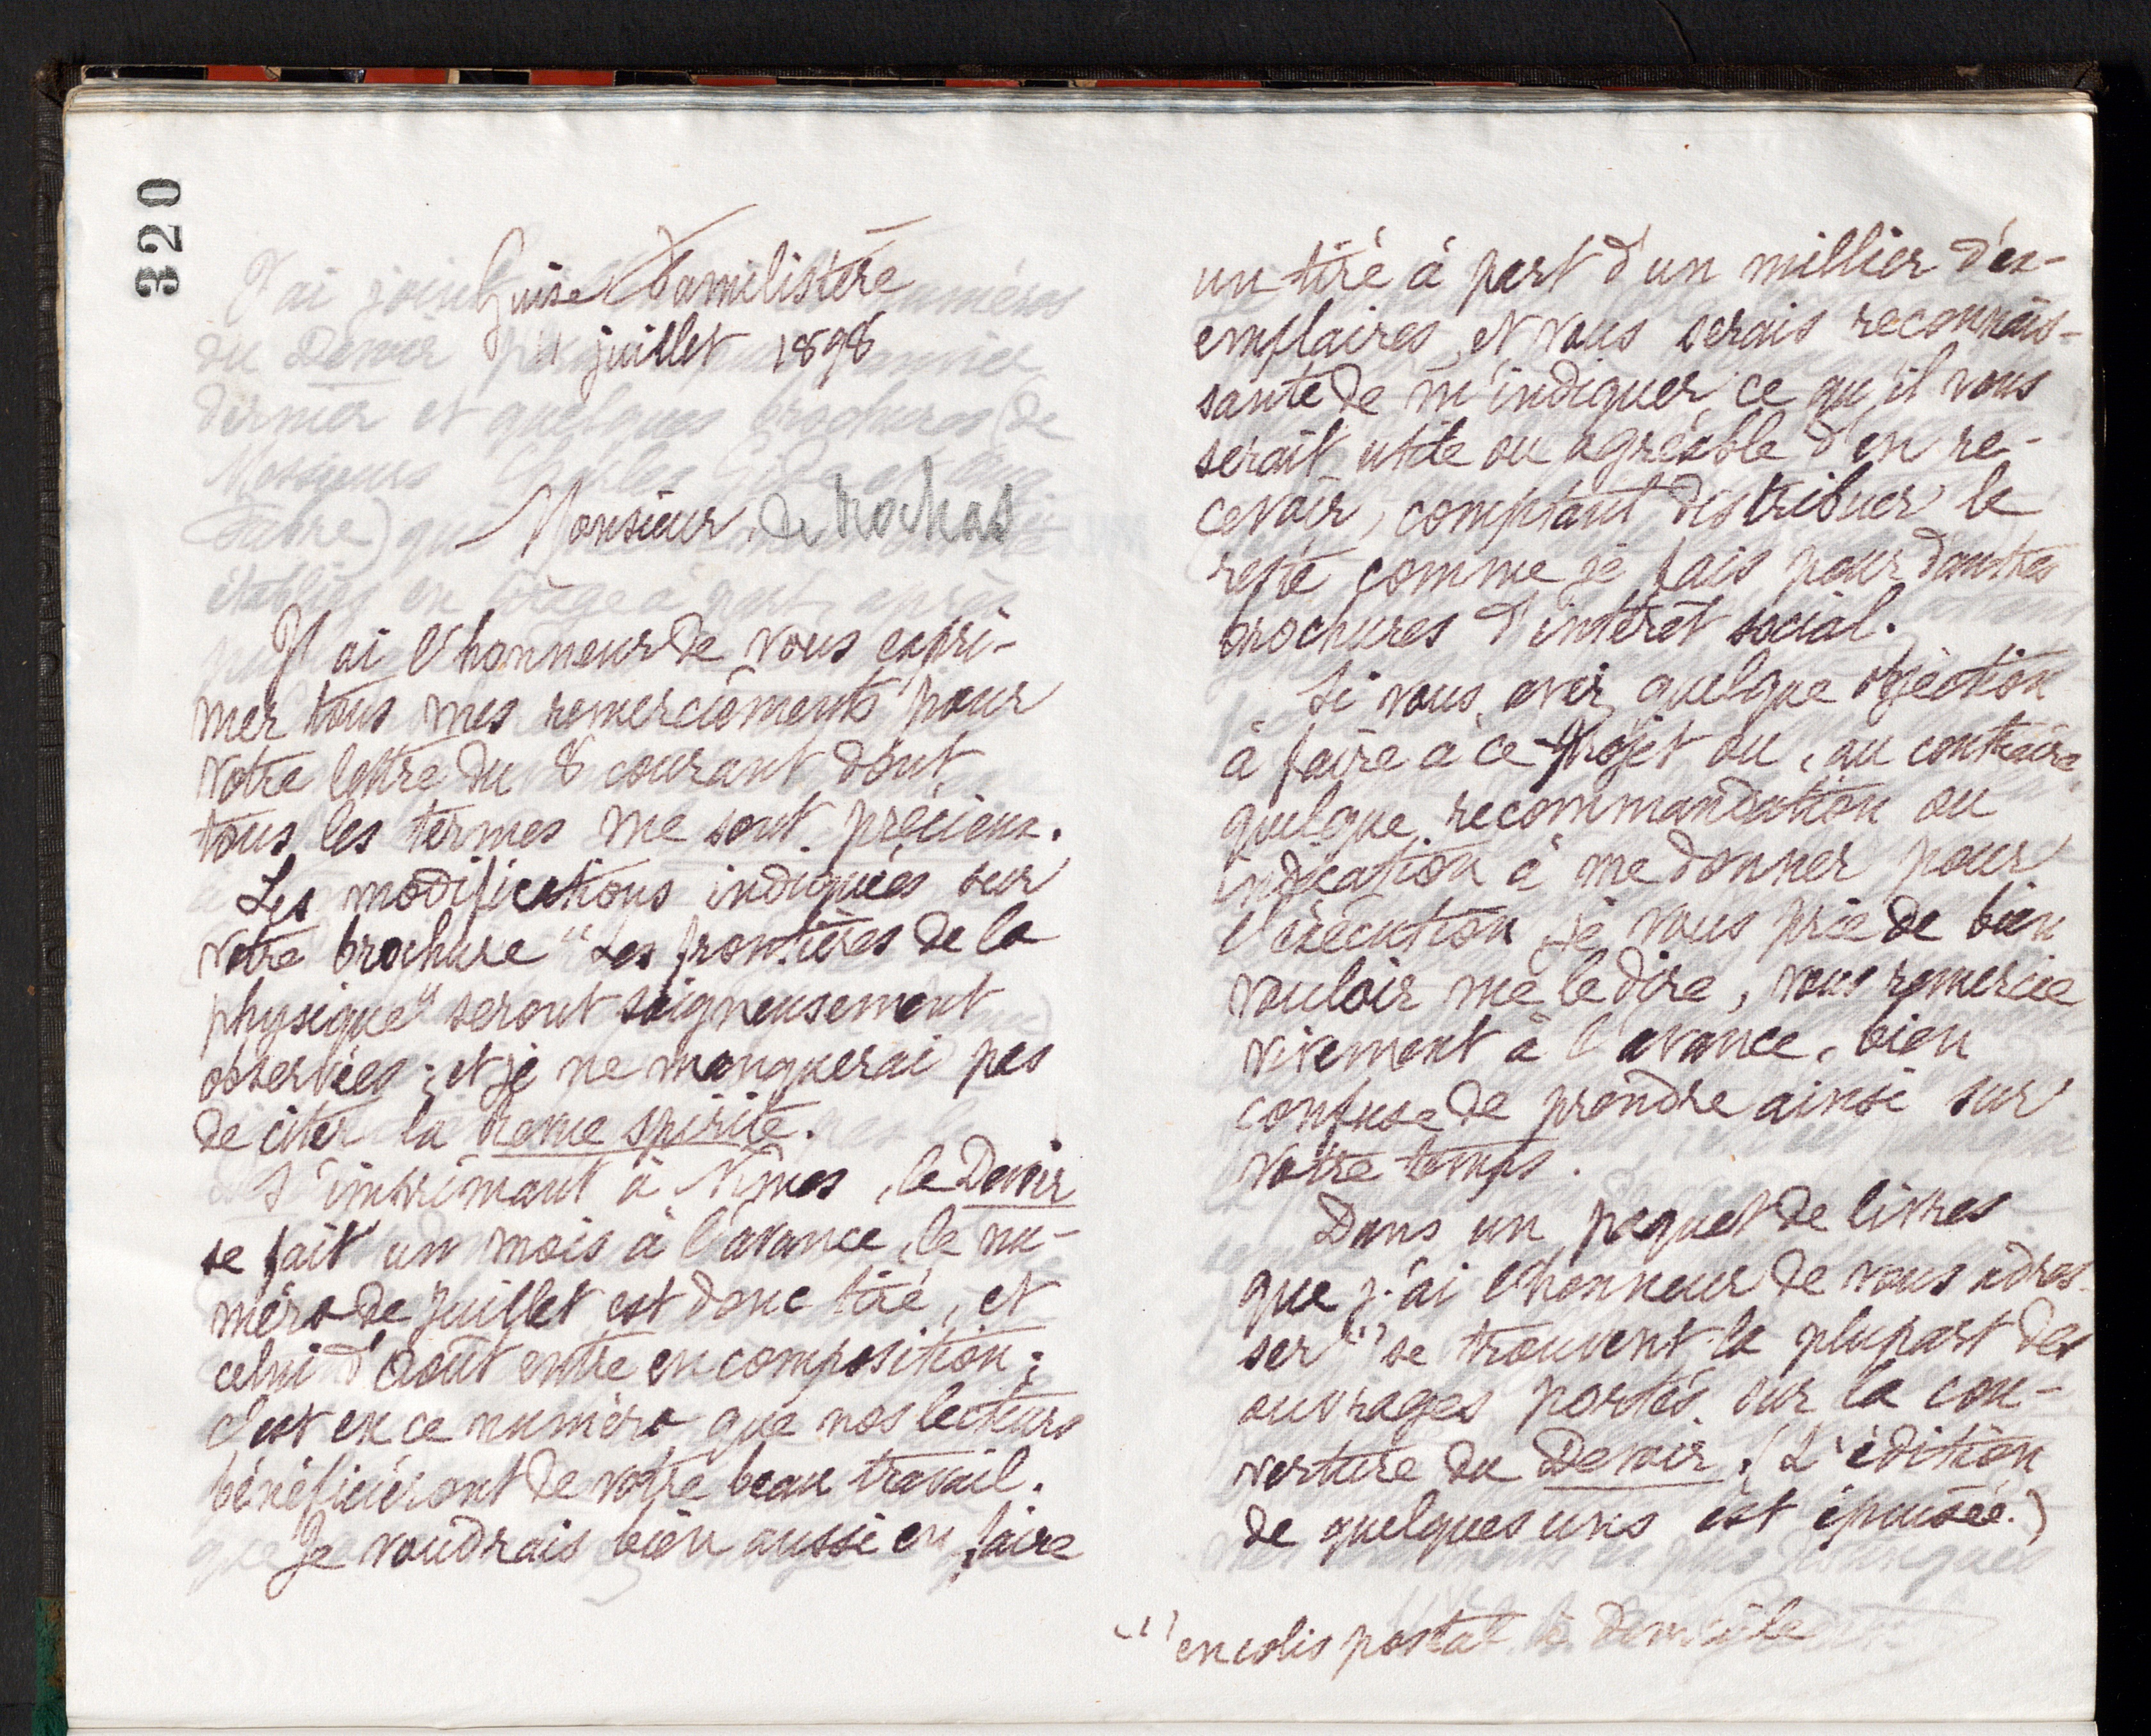 320
Guise Familistère
11 juillet 1898
Monsieur, de Rochas
J'ai l'honneur de vous expri-
mer tous mes remerciements pour
votre lettre du 8 courant dont
tous les termes me sont précieux.
Les modifications indiquées sur
votre brochure "Les frontières de la
physique" seront soigneusement
observées ; et je ne manquerai pas
de citer la revue spirite.
S'imprimant à Nîmes, le Devoir
se fait un mois à l'avance, le nu-
méro de juillet est donc tiré, et
celui d'août entre en composition ;
c'est en ce numéro que nos lecteurs
bénéficieront de votre beau travail.
Je voudrais bien aussi en faire
un tiré à part d'un millier d'ex-
emplaires, et vous serais reconnais-
sante de m'indiquer ce qu'il vous
serait utile ou agréable d'en re-
cevoir, comptant distribuer le
reste comme je fais pour d'autres
brochures d'intérêt social.
Si vous avez quelque objection
à faire à ce projet ou, au contraire,
quelque recommandation ou
indication à me donner pour
l'exécution je vous prie de bien
vouloir me le dire, vous remercie
vivement à l'avance, bien
confuse de prendre ainsi sur
votre temps.
Dans un paquet de livres
que j'ai l'honneur de vous adres-
ser (1) se trouvent la plupart des
ouvrages portés sur la cou-
verture du Devoir. (L'édition
de quelques uns est épuisée.)
(1) en colis postal à domicile